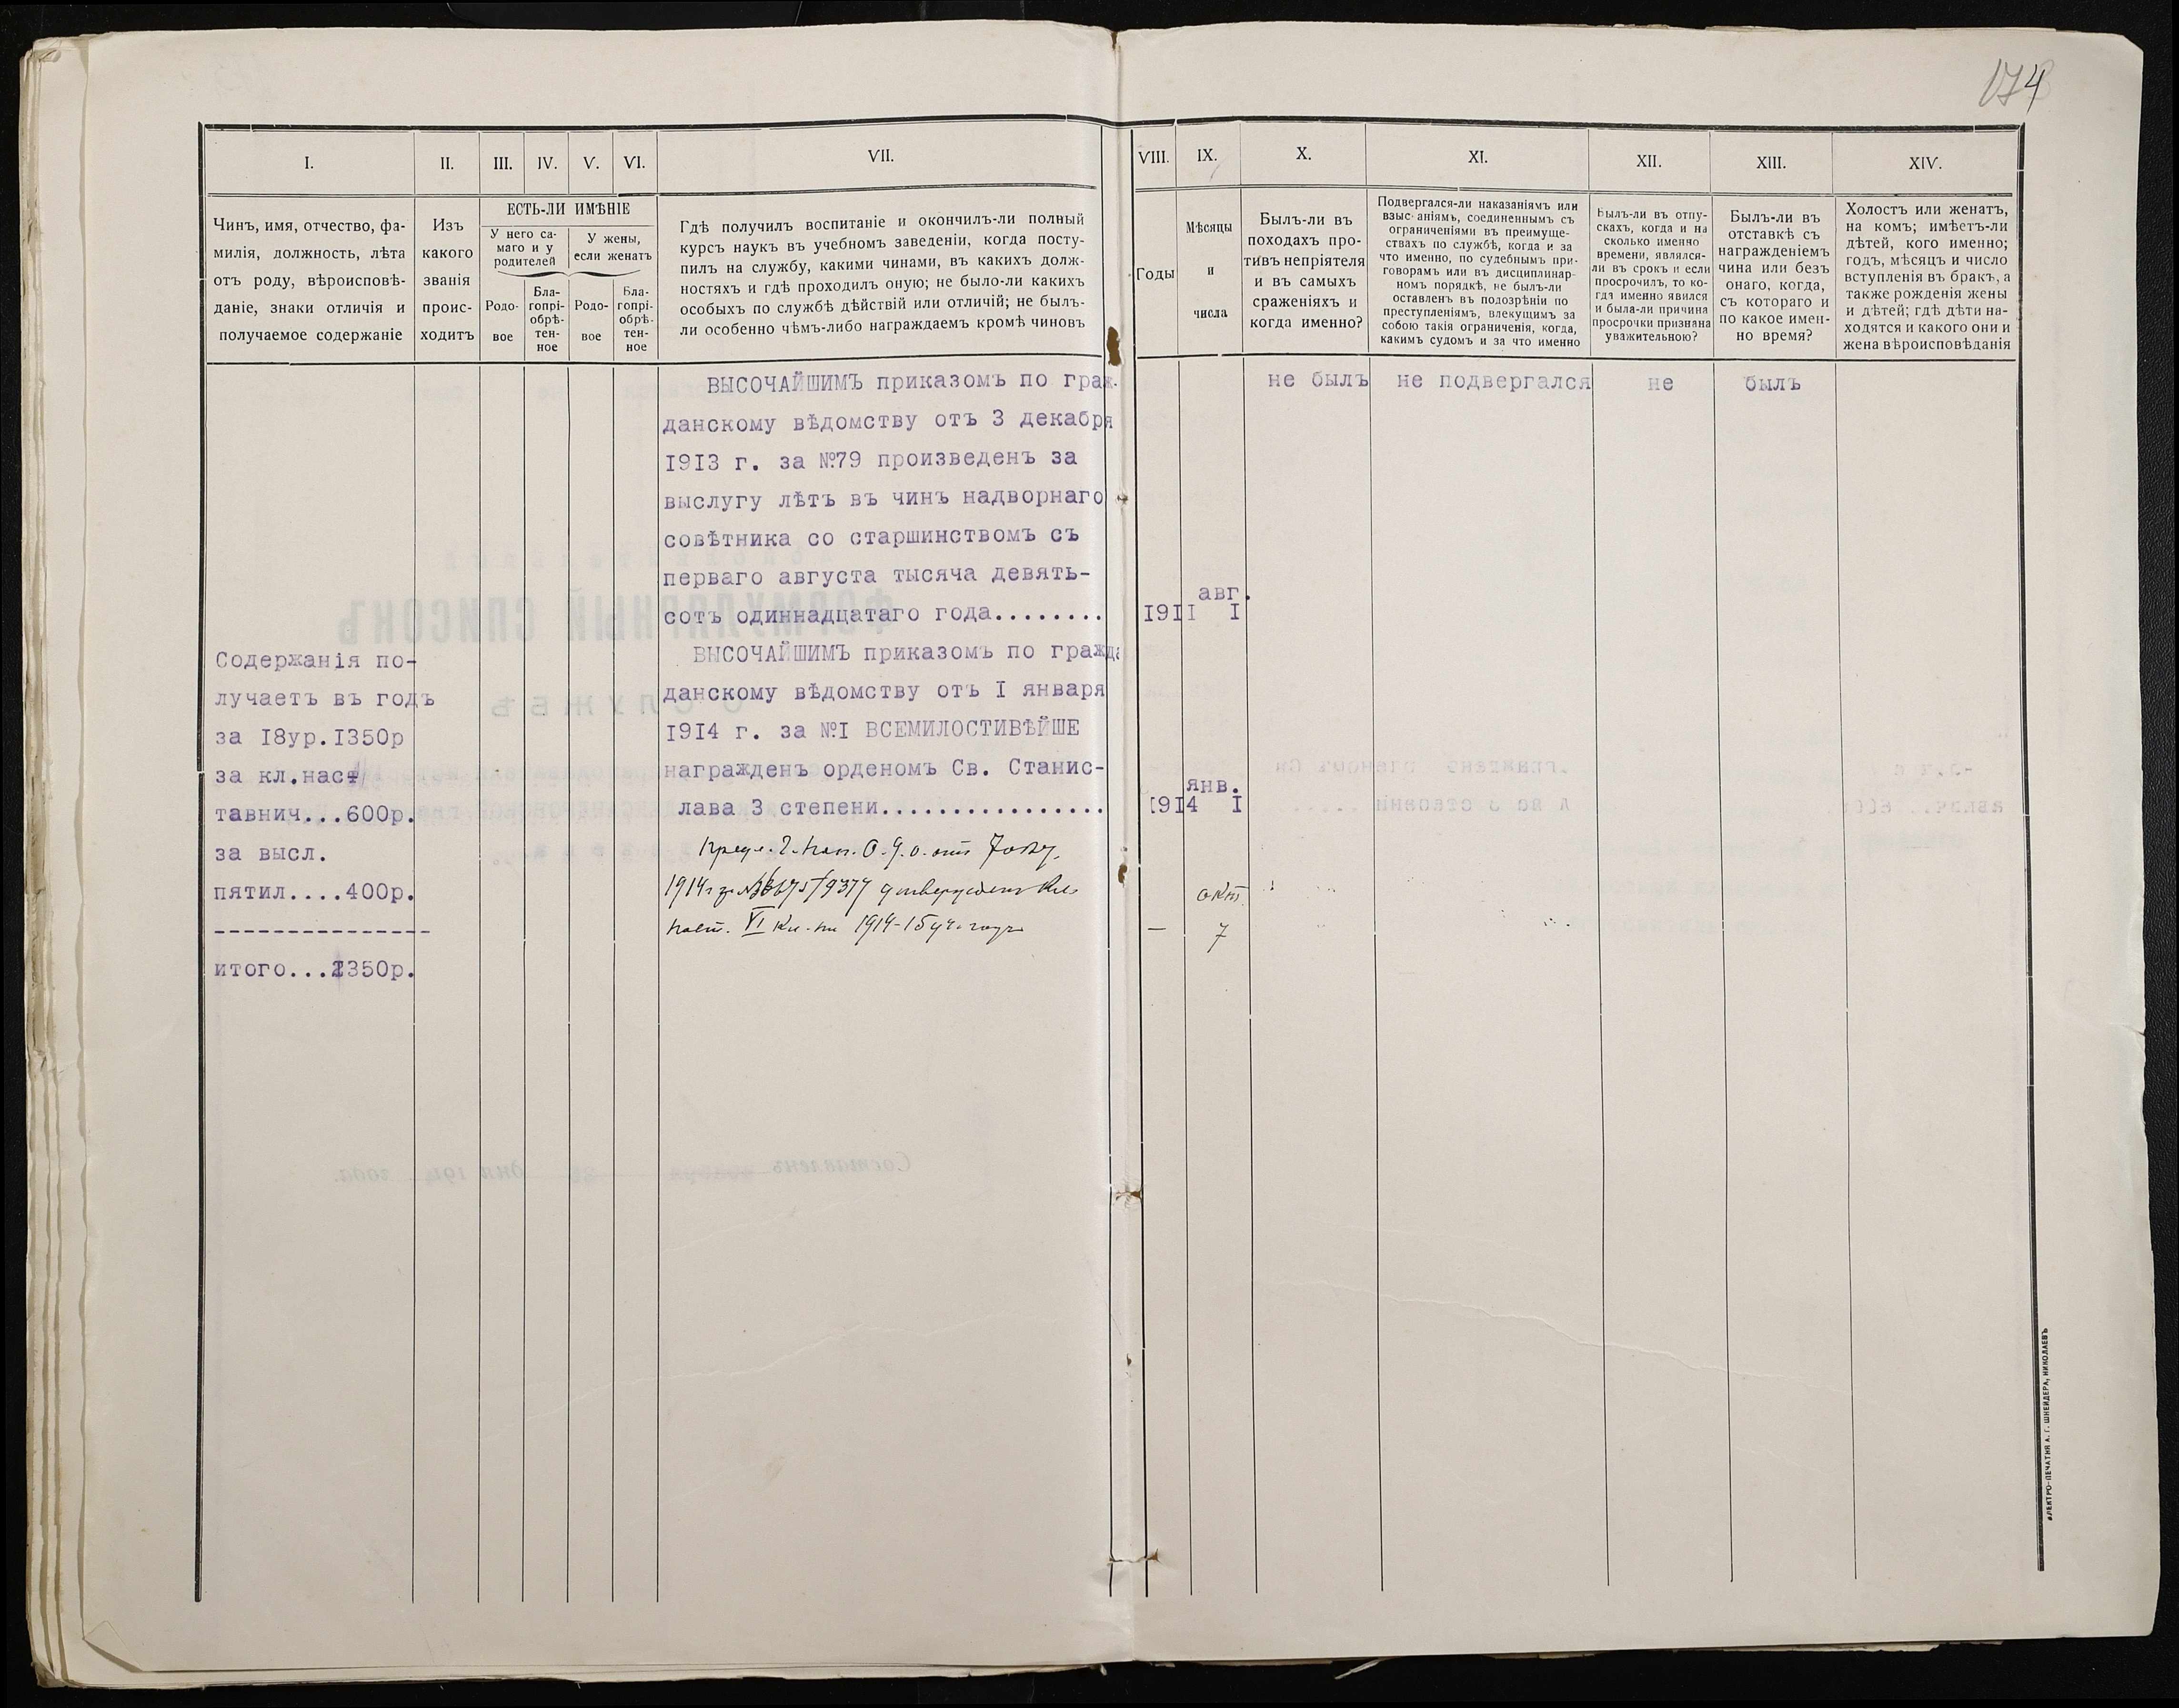 174
I.
II.
III.
IV.
V.
VI.
VII.
VIII.
IX.
X.
XI.
XII.
XIII.
XIV.
Чинъ, имя, отчество, фа-
милія, должность, лѣта
отъ роду, вѣроисповѣ-
даніе, знаки отличія и
получаемое содержаніе
Изъ
какого
званія
проис-
ходитъ
ЕСТЬ-ЛИ ИМѢНІЕ
У него са-
маго и у
родителей
У жены,
если женатъ
Родо-
вое
Бла-
гопрі-
обрѣ-
тен-
ное
Родо-
вое
Бла-
гопрі-
обрѣ-
тен-
ное
Гдѣ получилъ воспитаніе и окончилъ-ли полный
курсъ наукъ въ учебномъ заведеніи, когда посту-
пилъ на службу, какими чинами, въ какихъ долж-
ностяхъ и гдѣ проходилъ оную; не было-ли какихъ
особыхъ по службѣ дѣйствій или отличій; не былъ-
ли особенно чѣмъ-либо награждаемъ кромѣ чиновъ
Годы
Мѣсяцы
и
числа
Былъ-ли въ
походахъ про-
тивъ непріятеля
и въ самыхъ
сраженіяхъ и
когда именно?
Подвергался-ли наказаніямъ или
взысканіямъ, соединеннымъ съ
ограниченіями въ преимуще-
ствахъ по службѣ, когда и за
что именно, по судебнымъ при-
говорамъ или въ дисциплинар-
номъ порядкѣ, не былъ-ли
оставленъ въ подозрѣніи по
преступленіямъ, влекущимъ за
собою такія ограниченія, когда,
какимъ судомъ и за что именно
Былъ-ли въ отпу-
скахъ, когда и на
сколько именно
времени, являлся-
ли въ срокъ и если
просрочилъ, то ко-
гда именно явился
и была-ли причина
просрочки признана
уважительною?
Былъ-ли въ
отставкѣ съ
награжденіемъ
чина или безъ
онаго, когда,
съ котораго и
по какое имен-
но время?
Холостъ или женатъ,
на комъ; имѣетъ-ли
дѣтей, кого именно;
годъ, мѣсяцъ и число
вступленія въ бракъ, а
также рожденія жены
и дѣтей; гдѣ дѣти на-
ходятся и какого они и
жена вѣроисповѣданія
ВЫСОЧАЙШИМЪ приказомъ по граж-
данскому вѣдомству отъ 3 декабря
I9I3 г. за №79 произведенъ за
выслугу лѣтъ въ чинъ надворнаго
совѣтника со старшинствомъ съ
перваго августа тысяча девять-
сотъ одиннадцатаго года........
авг.
I9II I
не былъ
не подвергался
не
былъ
ВЫСОЧАЙШИМЪ приказомъ по гражд
данскому вѣдомству отъ I января
I9I4 г. за №I ВСЕМИЛОСТИВѢЙШЕ
награжденъ орденомъ Св. Станис-
лава 3 степени.................
янв.
I9I4 I
Содержанія по-
лучаетъ въ годъ
за I8ур.I350р
за кл.наст
тавнич...600р.
за высл.
пятил....400р.
---------------
итого...2350р.
О. у. о. отъ 7
1914 г. за №
VI кл. на 1914-15 уч. годъ
—
окт.
7
ЭЛЕКТРО-ПЕЧАТНЯ А. Г. ШНЕЙДЕРА, НИКОЛАЕВЪ